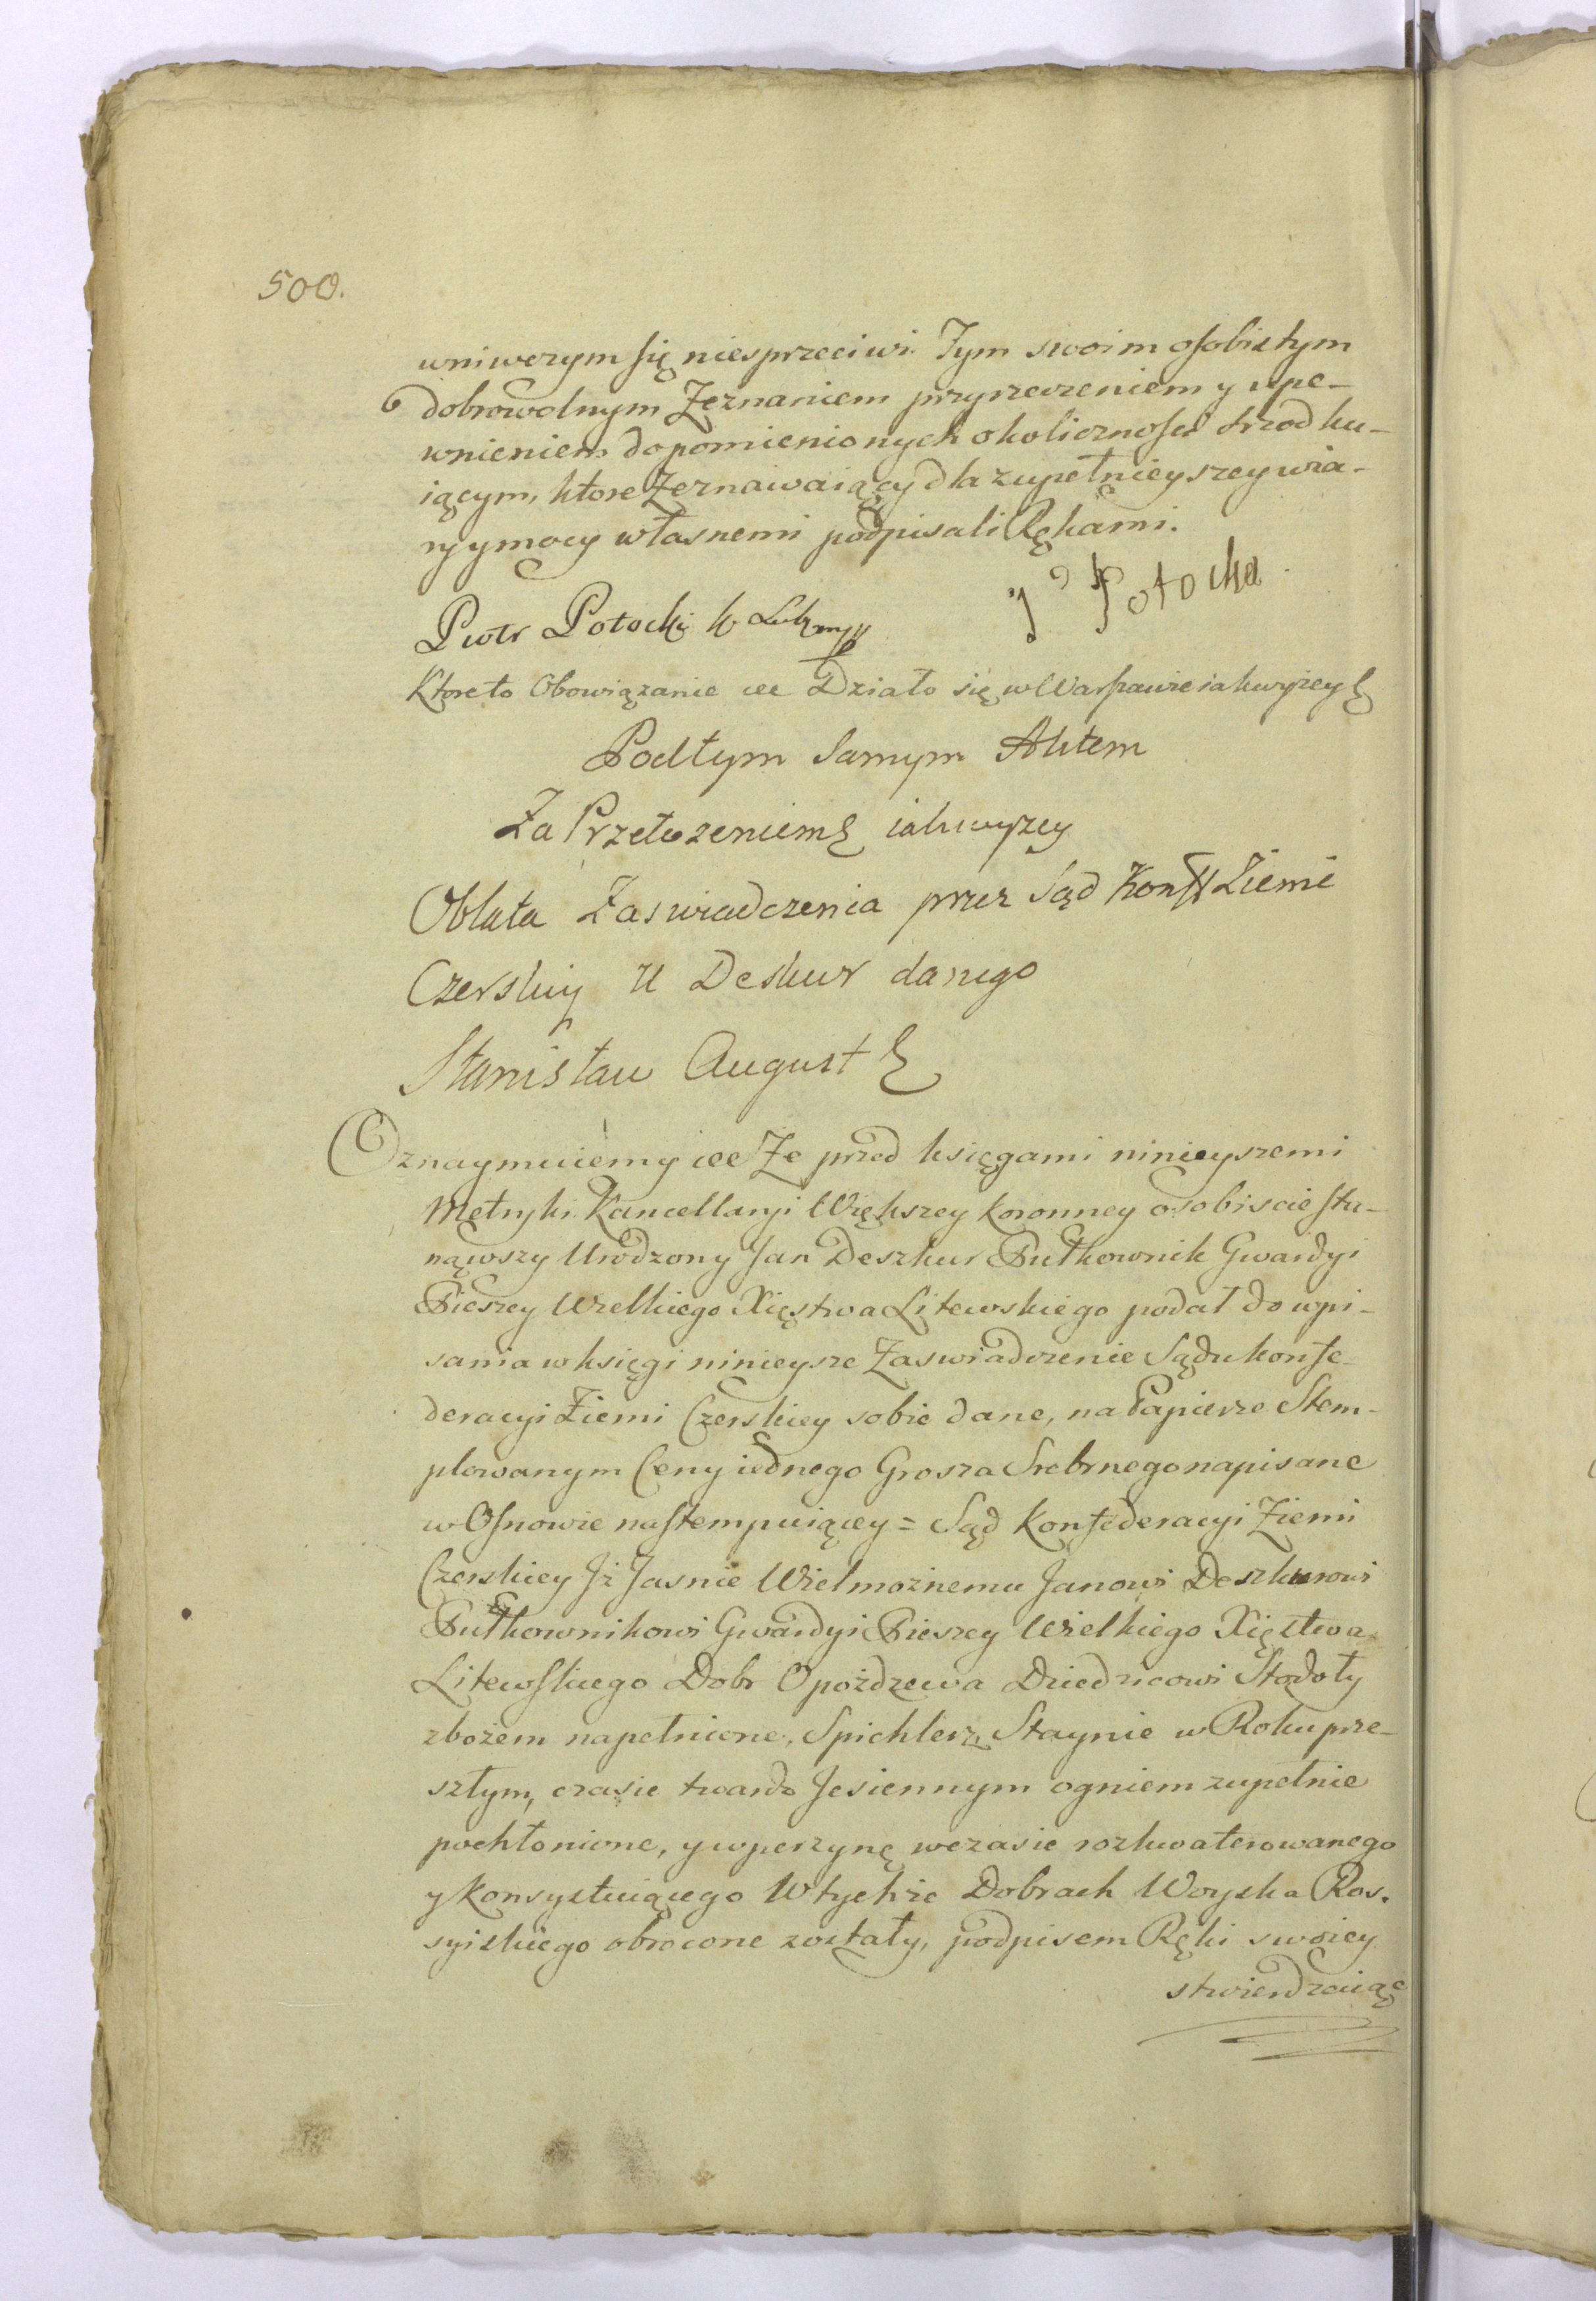 500.
wniwczym się niesprzeciwi. Tym swoim osobistym
dobrowolnym Zeznaniem przyrzeczeniem y upe-
wnieniem do pomienionych okoliczności srzodku-
iącym, ktore Zeznawaiący dla zupełnieyszey wia-
ry y mocy własnemi podpisali Rękami.
Piotr Potocki
Potocka
Ktore to Obowiązanie &c Działo się w Warszawie iakwyżey
Pod tym Samym Aktem
Za Przełożeniem iakwyżey
Oblata Zaswiadczenia przez Sąd Konf Ziemi
Czerskiy U Deskur danego
Stanisław August
Oznaymuiemy &c Ze przed księgami ninieyszemi
Metryki Kancellaryi Większey Koronney osobiscie sta-
nąwszy Urodzony Jan Deszkur Pułkownik Gwardyi
Pieszey Wielkiego Xięstwa Litewskiego podał do wpi-
sania w księgi ninieysze Zaswiadczenie Sądu konfe-
deracyi Ziemi Czerskiey sobie dane, na Papierze Stem-
plowanym Ceny iednego Grosza Srebrnego napisane
w Osnowie nastempuiącey = Sąd Konfederacyi Ziemi
Czerskiey Jż Jasnie Wielmożnemu Janowi Deszkurowi
Pułkownikowi Gwardyi Pieszey Wielkiego Xięstwa
Litewskiego Dobr Opożdzewa Dziedzicowi Stodoły
zbożem napełnione, Spichlerz, Staynie w Roku prze-
szłym, czasie Jesiennym ogniem zupełnie
pochłonione, y wperzynę wczasie rozkwaterowanego
y Konsystuiącego W tychże Dobrach Woyska Ros-
syiskiego obrocone zostały, podpisem Ręki swoiey
stwierdzaiąc